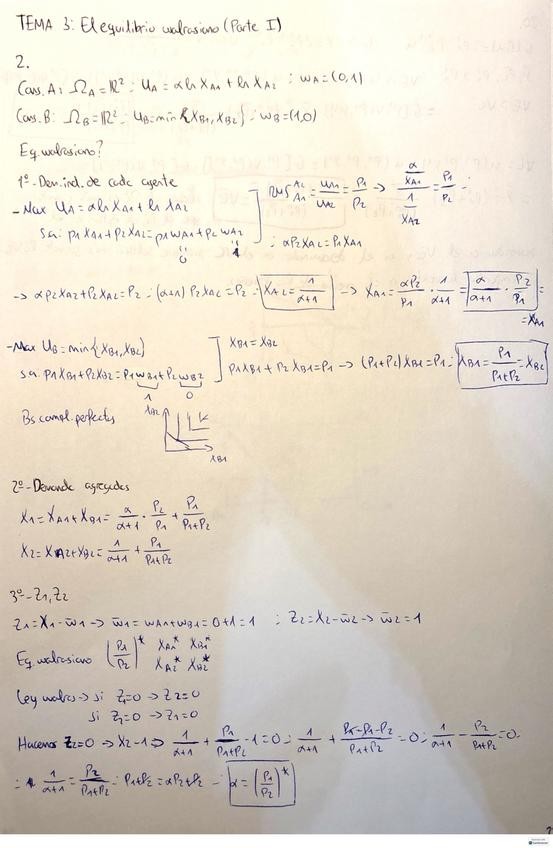 TEMA 3: El equilibrio walrasiano (Parte I)
2.
Cons. A: Ω_A = ℝ² ; u_A = α ln x_A1 + ln x_A2 ; w_A = (0,1)
Cons. B: Ω_B = ℝ² ; u_B = min{x_B1, x_B2} ; w_B = (1,0)
Eq. walrasiano?
1º- Dem. ind. de cada agente
- Max u_A = α ln x_A1 + ln x_A2
s.a: p1 x_A1 + p2 x_A2 = p1 w_A1 + p2 w_A2
0 1
= p1/p2 → (α/x_A1)/(1/x_A2) = p1/p2 ;
; α p2 x_A2 = p1 x_A1
→ α p2 x_A2 + p2 x_A2 = p2 ; (α+1) p2 x_A2 = p2 ; x_A2 = 1/(α+1) → x_A1 = αp2/p1 · 1/(α+1) = α/(α+1) · p2/p1 =
= x_A1
- Max u_B = min{x_B1, x_B2}
s.a: p1 x_B1 + p2 x_B2 = p1 w_B1 + p2 w_B2
1 0
x_B1 = x_B2
p1 x_B1 + p2 x_B1 = p1 → (p1+p2) x_B1 = p1 ; x_B1 = p1/(p1+p2) = x_B2
Bs compl. perfectos
x_B2
x_B1
2º- Demanda agregadas
x1 = x_A1 + x_B1 = α/(α+1) · p2/p1 + p1/(p1+p2)
x2 = x_A2 + x_B2 = 1/(α+1) + p1/(p1+p2)
3º- z1, z2
z1 = x1 - w̄1 → w̄1 = w_A1 + w_B1 = 0+1 = 1 ; z2 = x2 - w̄2 → w̄2 = 1
Eq. walrasiano (p1/p2)* x_A1* x_B1*
x_A2* x_B2*
Ley walras → si z1=0 → z2=0
si z2=0 → z1=0
Hacemos z2=0 → x2-1 → 1/(α+1) + p1/(p1+p2) - 1 = 0 ; 1/(α+1) + (p1-p1-p2)/(p1+p2) = 0 ; 1/(α+1) - p2/(p1+p2) = 0 ;
; 1/(α+1) = p2/(p1+p2) ; p1+p2 = αp2+p2 ; α = (p1/p2)*